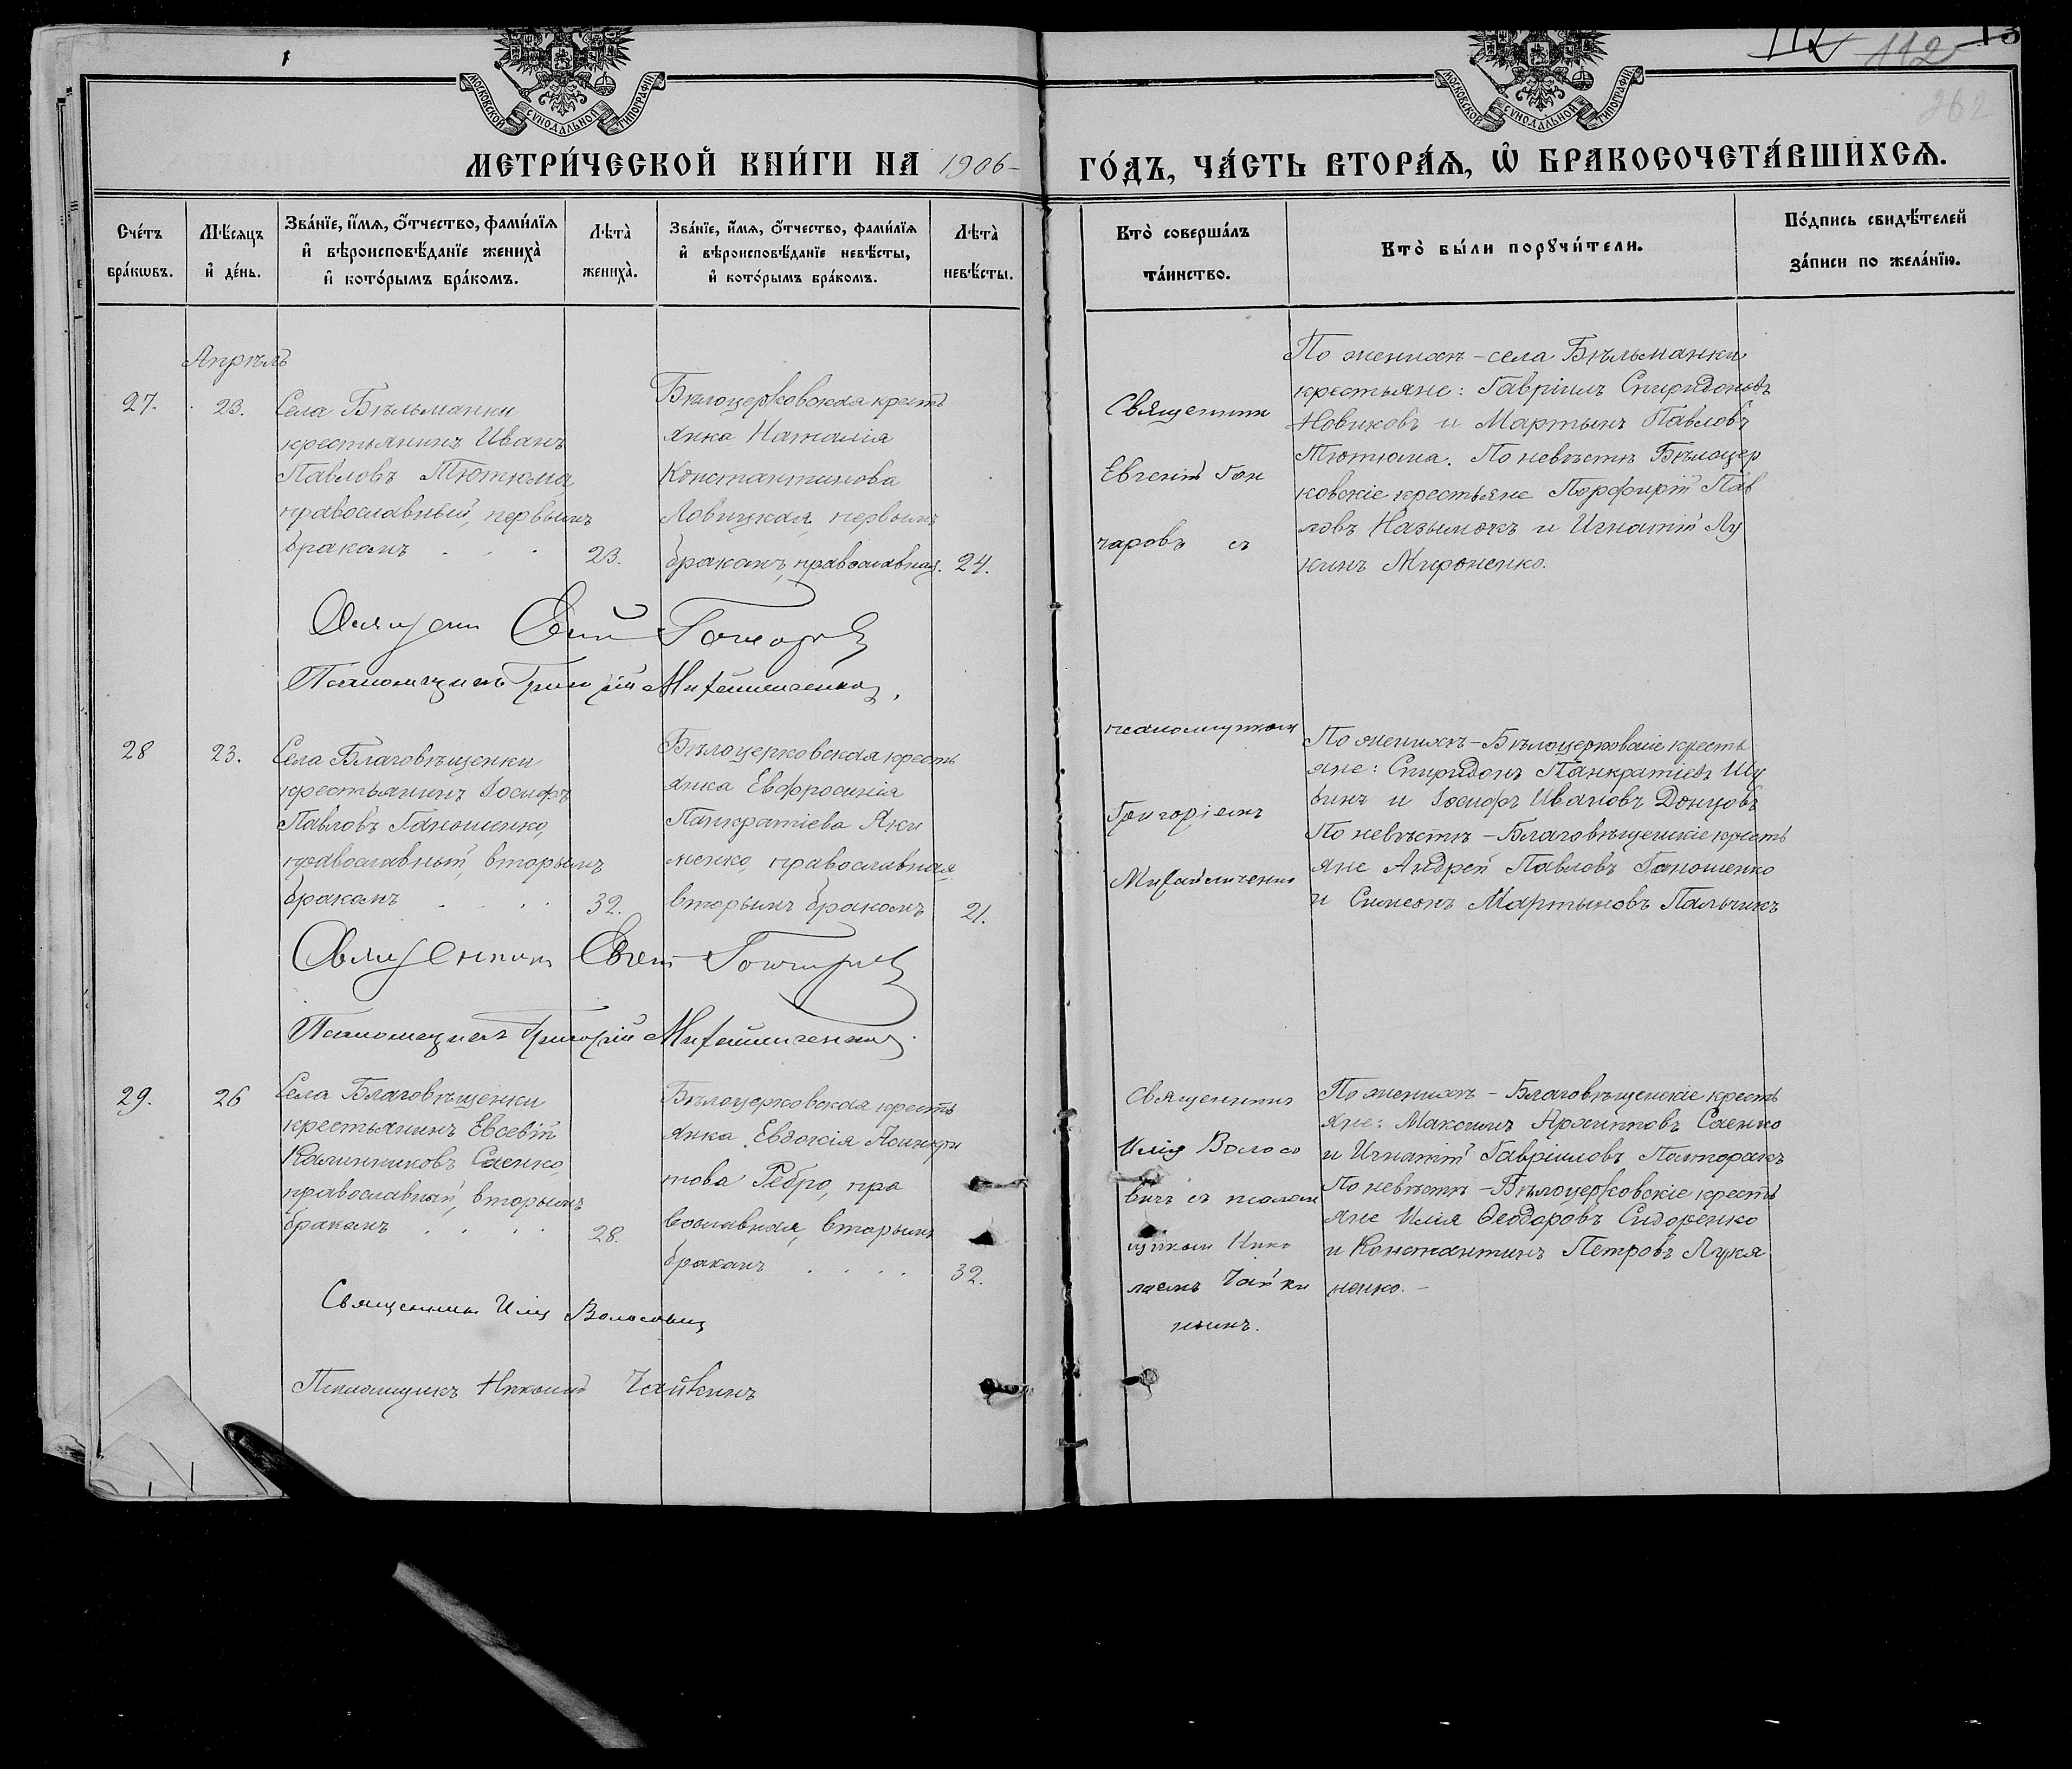 112
112
262
МОСКОВСКОЙ СѴНОДАЛЬНОЙ ТИПОГРАФІИ
МОСКОВСКОЙ СѴНОДАЛЬНОЙ ТИПОГРАФІИ
МЕТРИ́ЧЕСКОЙ КНИ́ГИ НА 1906 ГО́ДЪ, ЧА́СТЬ ВТОРА́Я, Ѡ҆ БРАКОСОЧЕТА́ВШИХСЯ.
Сче́тъ бра́кѡвъ.
Мѣ́сяцъ и҆ де́нь.
Зва́нїе, и҆́мя, ѻ҆́тчество, фами́лїя
и҆ вѣроисповѣ́данїе жениха̀
и҆ кото́рымъ бра́комъ.
Лѣта̀ жениха̀.
Зва́нїе, и҆́мя, ѻ҆́тчество, фами́лїя
и҆ вѣроисповѣ́данїе невѣ́сты,
и҆ кото́рымъ бра́комъ.
Лѣта̀ невѣ́сты.
Кто̀ соверша́лъ та́инство.
Кто̀ бы́ли порꙋчи́тели.
По́дпись свидѣ́телей за́писи по жела́нїю.
Апрѣль
27.
23.
Села Бѣльманки
крестьянинъ Иванъ
Павловъ Тютюма,
православный, первымъ
бракомъ . . .
23.
Бѣлоцерковская кресть
янка Наталія
Константинова
Ловицкая, первымъ
бракомъ, православная.
24.
Священник
Евгеній Гон
чаровъ съ
По женихѣ - села Бѣльманки
крестьяне: Гавріилъ Спиридоновъ
Новиковъ и Мартынъ Павловъ
Тютюма. По невѣстѣ Бѣлоцер
ковскіе крестьяне Порфирій Пав
ловъ Назымокъ и Игнатій Лу
кинъ Мироненко.
Священ Евгеній Гончаровъ
Псаломщикъ Григорій Михайличенко,
28
23.
Села Благовѣщенки
крестьянинъ Іосифъ
Павловъ Ганошенко,
православный, вторымъ
бракомъ . . . .
32.
Бѣлоцерковская кресть
янка Евфросинія
Панкратіева Яки
менко, православная
вторымъ бракомъ
21.
псаломщиком
Григоріемъ
Михайличенко
По женихѣ - Бѣлоцерковскіе кресть
яне: Спиридонъ Панкратіевъ Шу
бинъ и Іосифъ Ивановъ Донцовъ
По невѣстѣ - Благовѣщенскіе кресть
яне Андрей Павловъ Ганошенко
и Симеонъ Мартыновъ Пальчикъ
Священникъ Евгеній Гончаровъ
Псаломщикъ Григорій Михайличенко.
29.
26
Села Благовѣщенки
крестьянинъ Евсевій
Калинниковъ Саенко,
православный, вторымъ
бракомъ . . . .
28.
Бѣлоцерковская кресть
янка Евдокія Асинкри
това Ребро, пра
вославная, вторымъ
бракомъ . . . .
32.
Священникъ
Илія Волосо
вичъ съ псалом
щиком Нико
лаемъ Чайки
нымъ.
По женихѣ - Благовѣщенскіе кресть
яне: Максимъ Архиповъ Саенко
и Игнатій Гавріиловъ Полторакъ
По невѣстѣ - Бѣлоцерковскіе кресть
яне Илія Ѳеодоровъ Сидоренко
и Константинъ Петровъ Лукя
ненко. -
Священникъ Илія Волосовичъ
Псаломщикъ Николай Чайкинъ